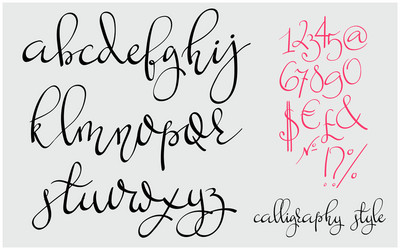 abcdefghij
klmnopqr
stuvwxyz
12345@
67890
$€£&
№!?%
calligraphy style